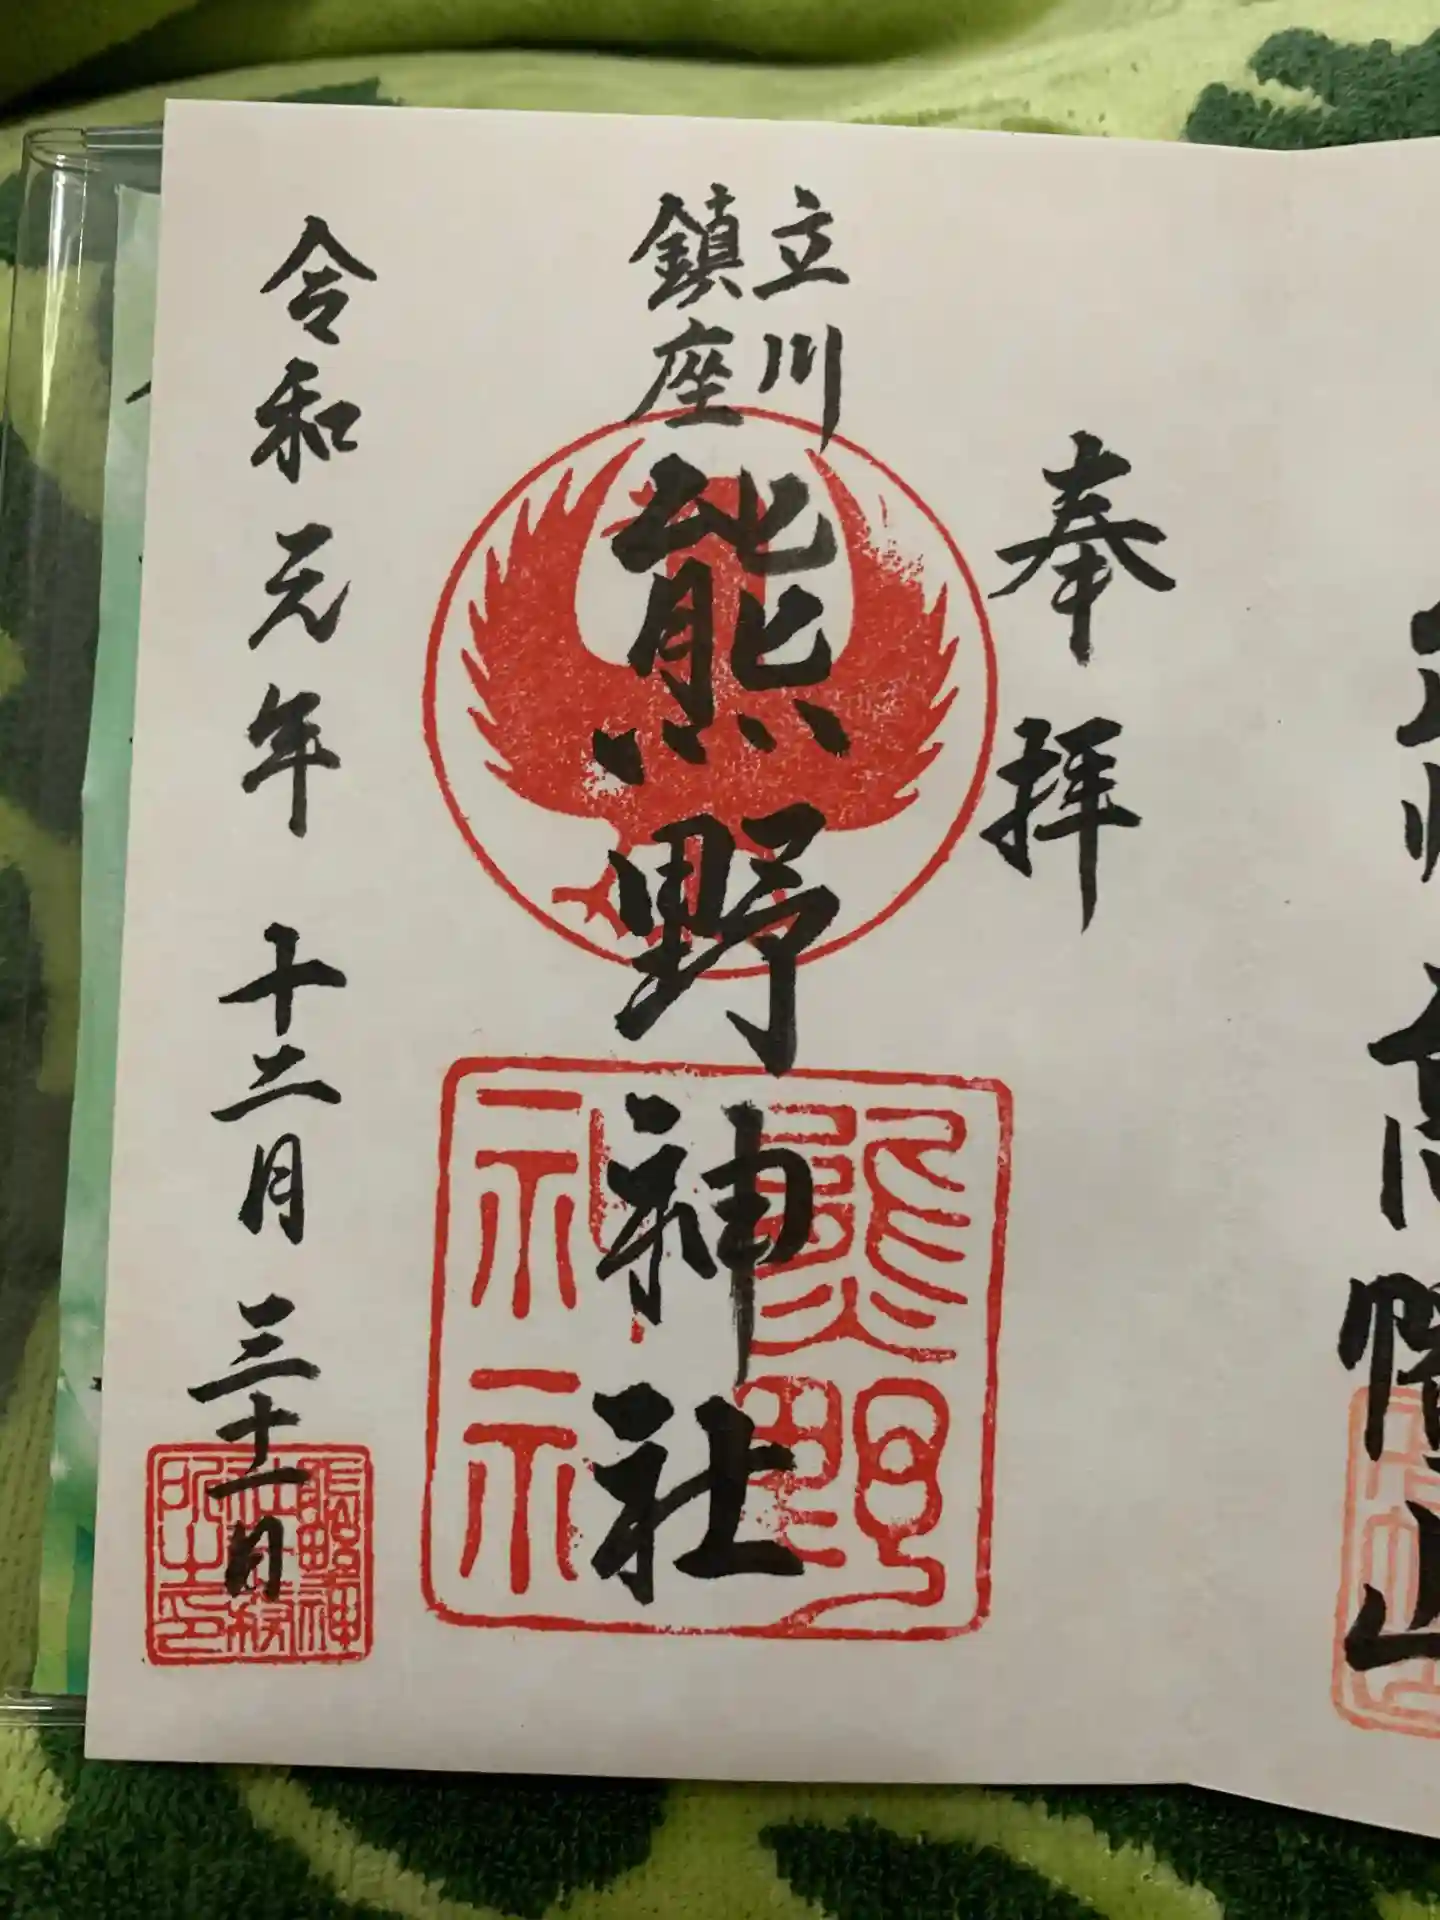 奉拝
立川
鎮座
熊野神社
熊野
神社
令和元年十二月三十一日
熊野神
社社務
所之印